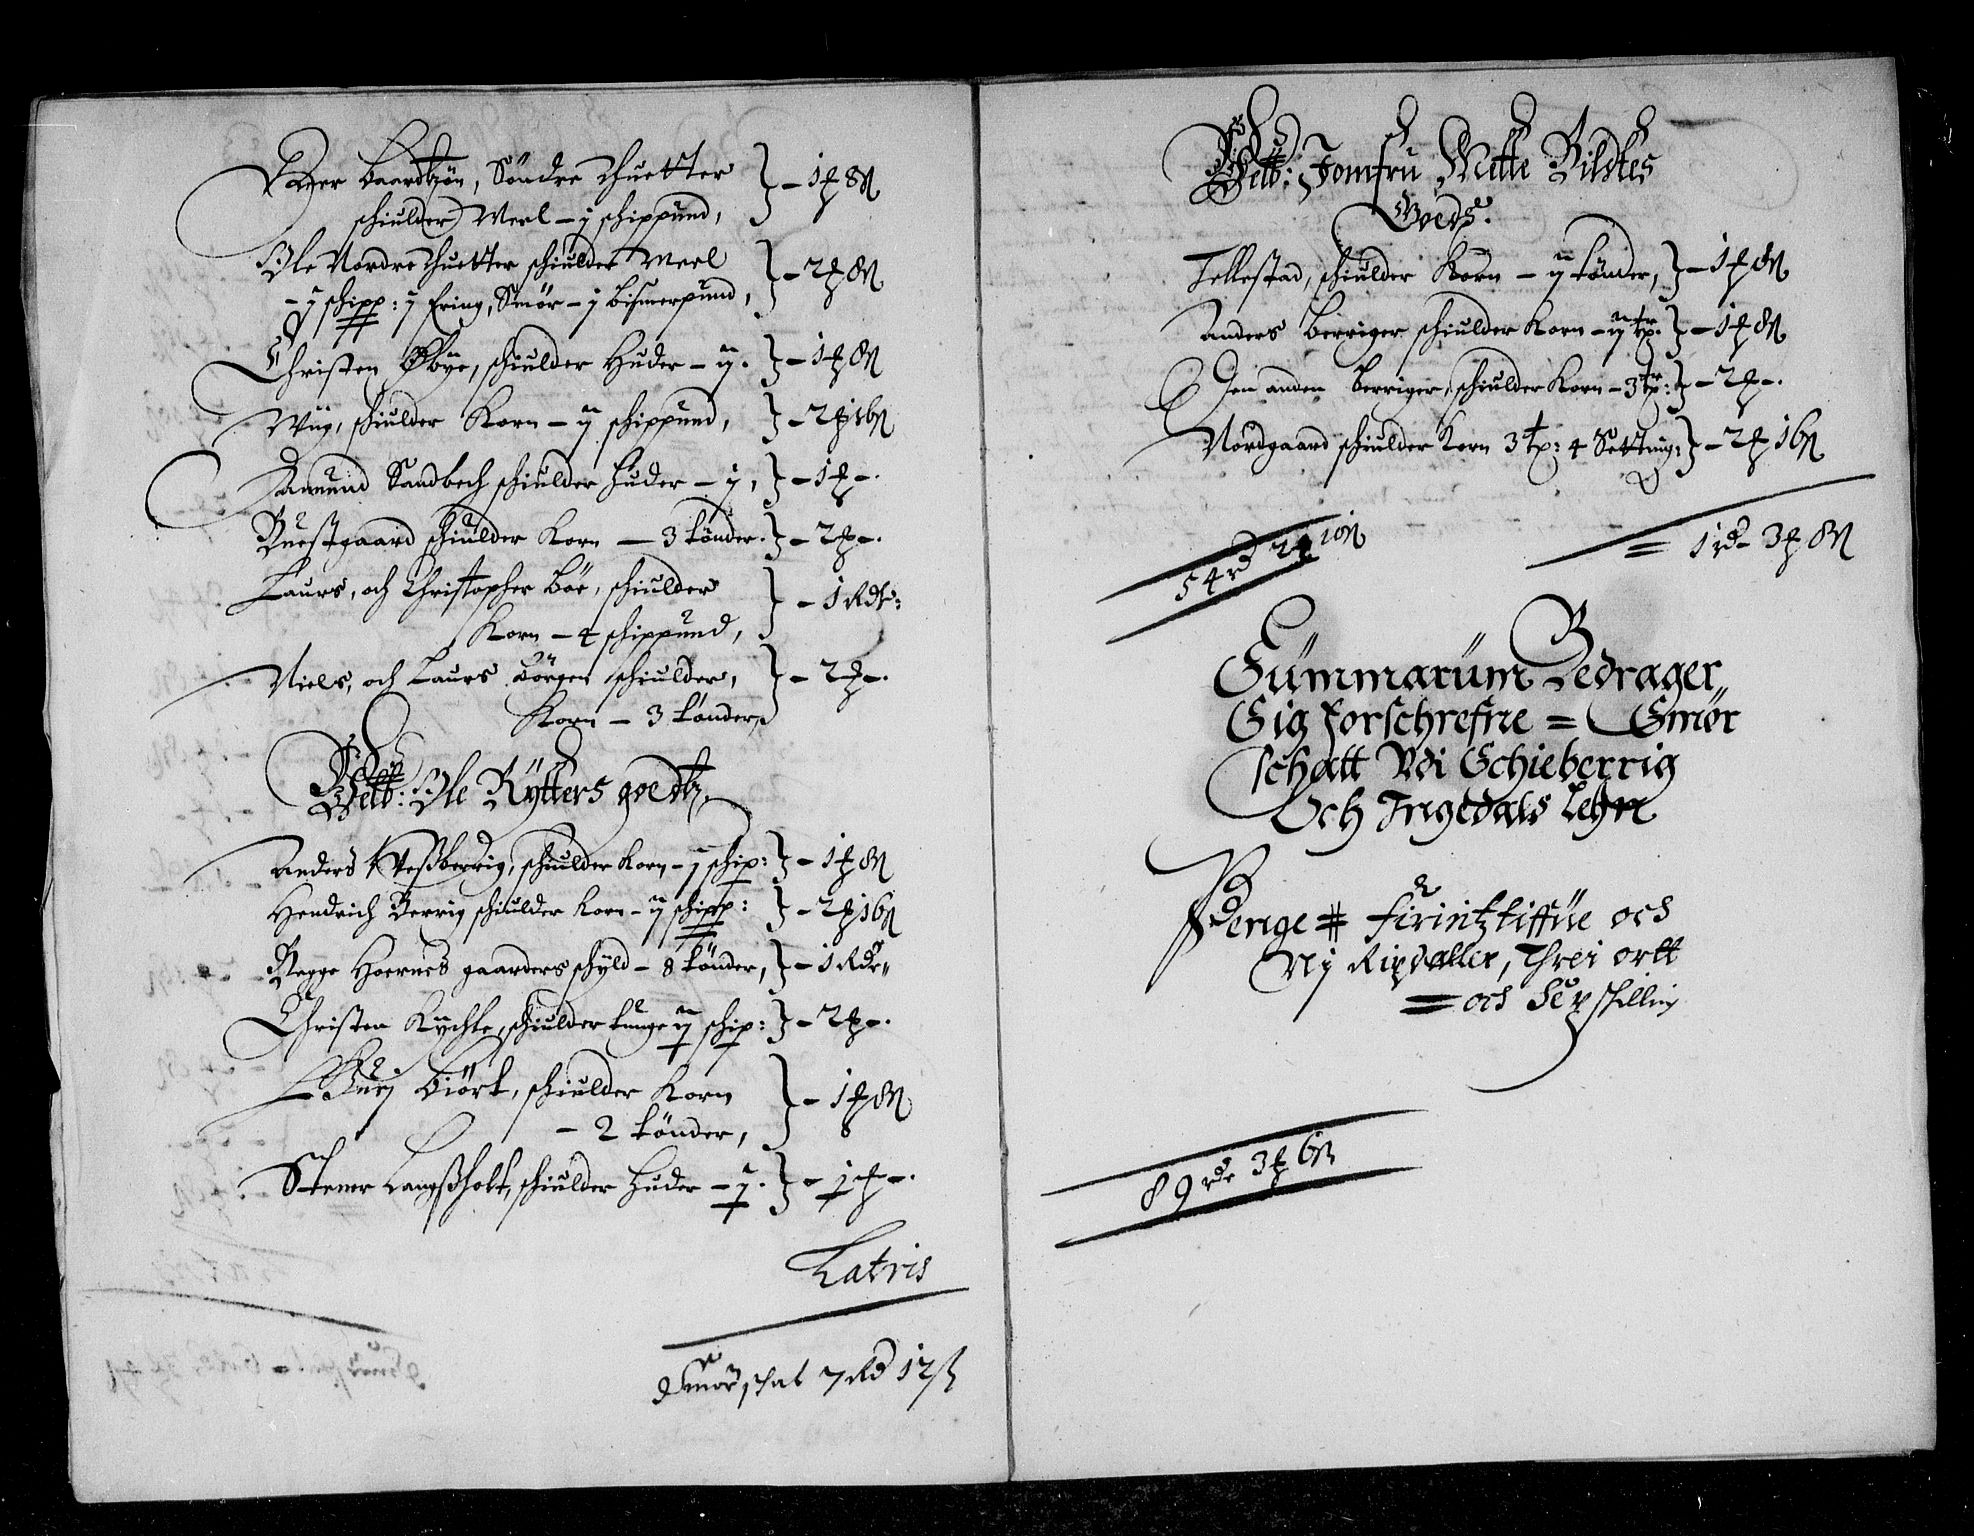 Baardtzøn, Søndre Thuetter } – 1 ₰ 8 ß
schiulder Meel – j schippund,
Ole Nordre Thuetter schiulder Meel } – 2 ₰ 8 ß
– j schipp: j fring, Smør – j bismerpund,
Christen Øbye, schiulder Huder – ij. } – 1 ₰ 8 ß
Wiig, schiulder Korn – ij schippund, } – 2 ₰ 16 ß
Amund Sandbech schiulder Huder – j, } – 1 ₰ –.
Ruestgaard schiulder Korn – 3 tønder. } – 2 ₰ –.
Laurs, och Christopher Bøe, schiulder } – 1 Rdr:
Korn – 4 schippund,
Niels, och Laurs Børgen schiulder, } – 2 ₰ –.
Korn – 3 tønder,
Welb: Ole Rytters goedtz,
Anders Westberrig, schiulder Korn – j schip: } – 1 ₰ 8 ß
Hendrich Berrig schiulder Korn – ij schipp: } – 2 ₰ 16 ß
Begge Hoernes gaarders schyld – 8 tønder, } – 1 Rdr
Christen Kychle, schiulder tunge ij schip: } – 2 ₰ –.
Biørk, schiulder Korn } – 1 ₰ 8 ß
– 2 tønder,
Stener Langßholt, schiulder Huder – j. } – 1 ₰ –.
Latris
Smør schat 7 Rd 12 ß
Welb: Jomfru Mette Bildtes
Goeds.
Tellestad, schiulder Korn – ij tønder, } – 1 ₰ 8 ß
Anders Berriger schiulder Korn – ij tr. } – 1 ₰ 8 ß
Den anden Berriger, schiulder Korn – 3 tr: } – 2 ₰ –.
Nordgaard schiulder Korn 3 tp: 4 Setting: } – 2 ₰ 16 ß
= 1 rd – 3 ₰ 8 ß
54 rd 2 ₰ 10 ß
Summarum Bedrager
Sig forschrefne = Smør
schatt Udi Schieberrig
Och Ingedals Lehn
Penge # firintztiffue och
Nj Rixdaller, Threi ortt
= och Sex skilling
89 rdr 3 ₰ 6 ß